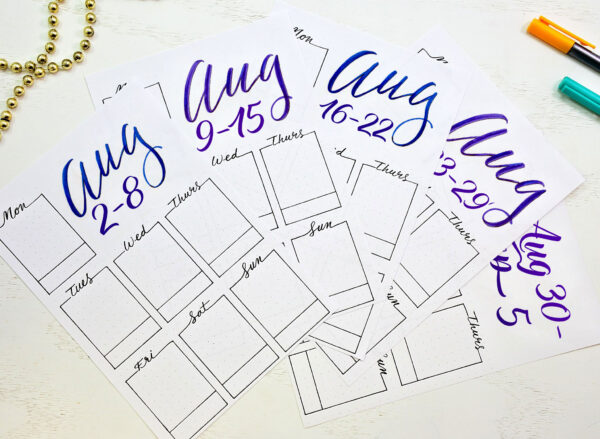 Aug
2-8
Mon
Tues
Wed
Thurs
Fri
Sat
Sun
Aug
9-15
Wed
Thurs
Sun
Mon
Aug
16-22
Thurs
Aug
3-29
Thurs
Aug 30-
5
Thurs